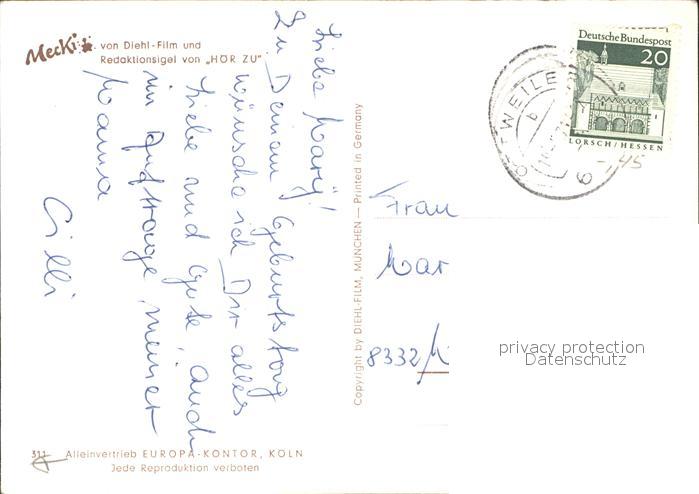 Mecki von Diehl-Film und
Redaktionsigel von „HÖR ZU"
Liebe Mary!
Zu Deinem Geburtstag
wünsche ich Dir alles
Liebe und Gute, auch
im Auftrage meiner
Mama
Cilli
311 Alleinvertrieb EUROPA-KONTOR, KÖLN
Jede Reproduktion verboten
Copyright by DIEHL-FILM, MÜNCHEN — Printed in Germany
Deutsche Bundespost
20
LORSCH/HESSEN
-,45
WEILE
b
6
Frau
Mar
8332 M
privacy protection
Datenschutz